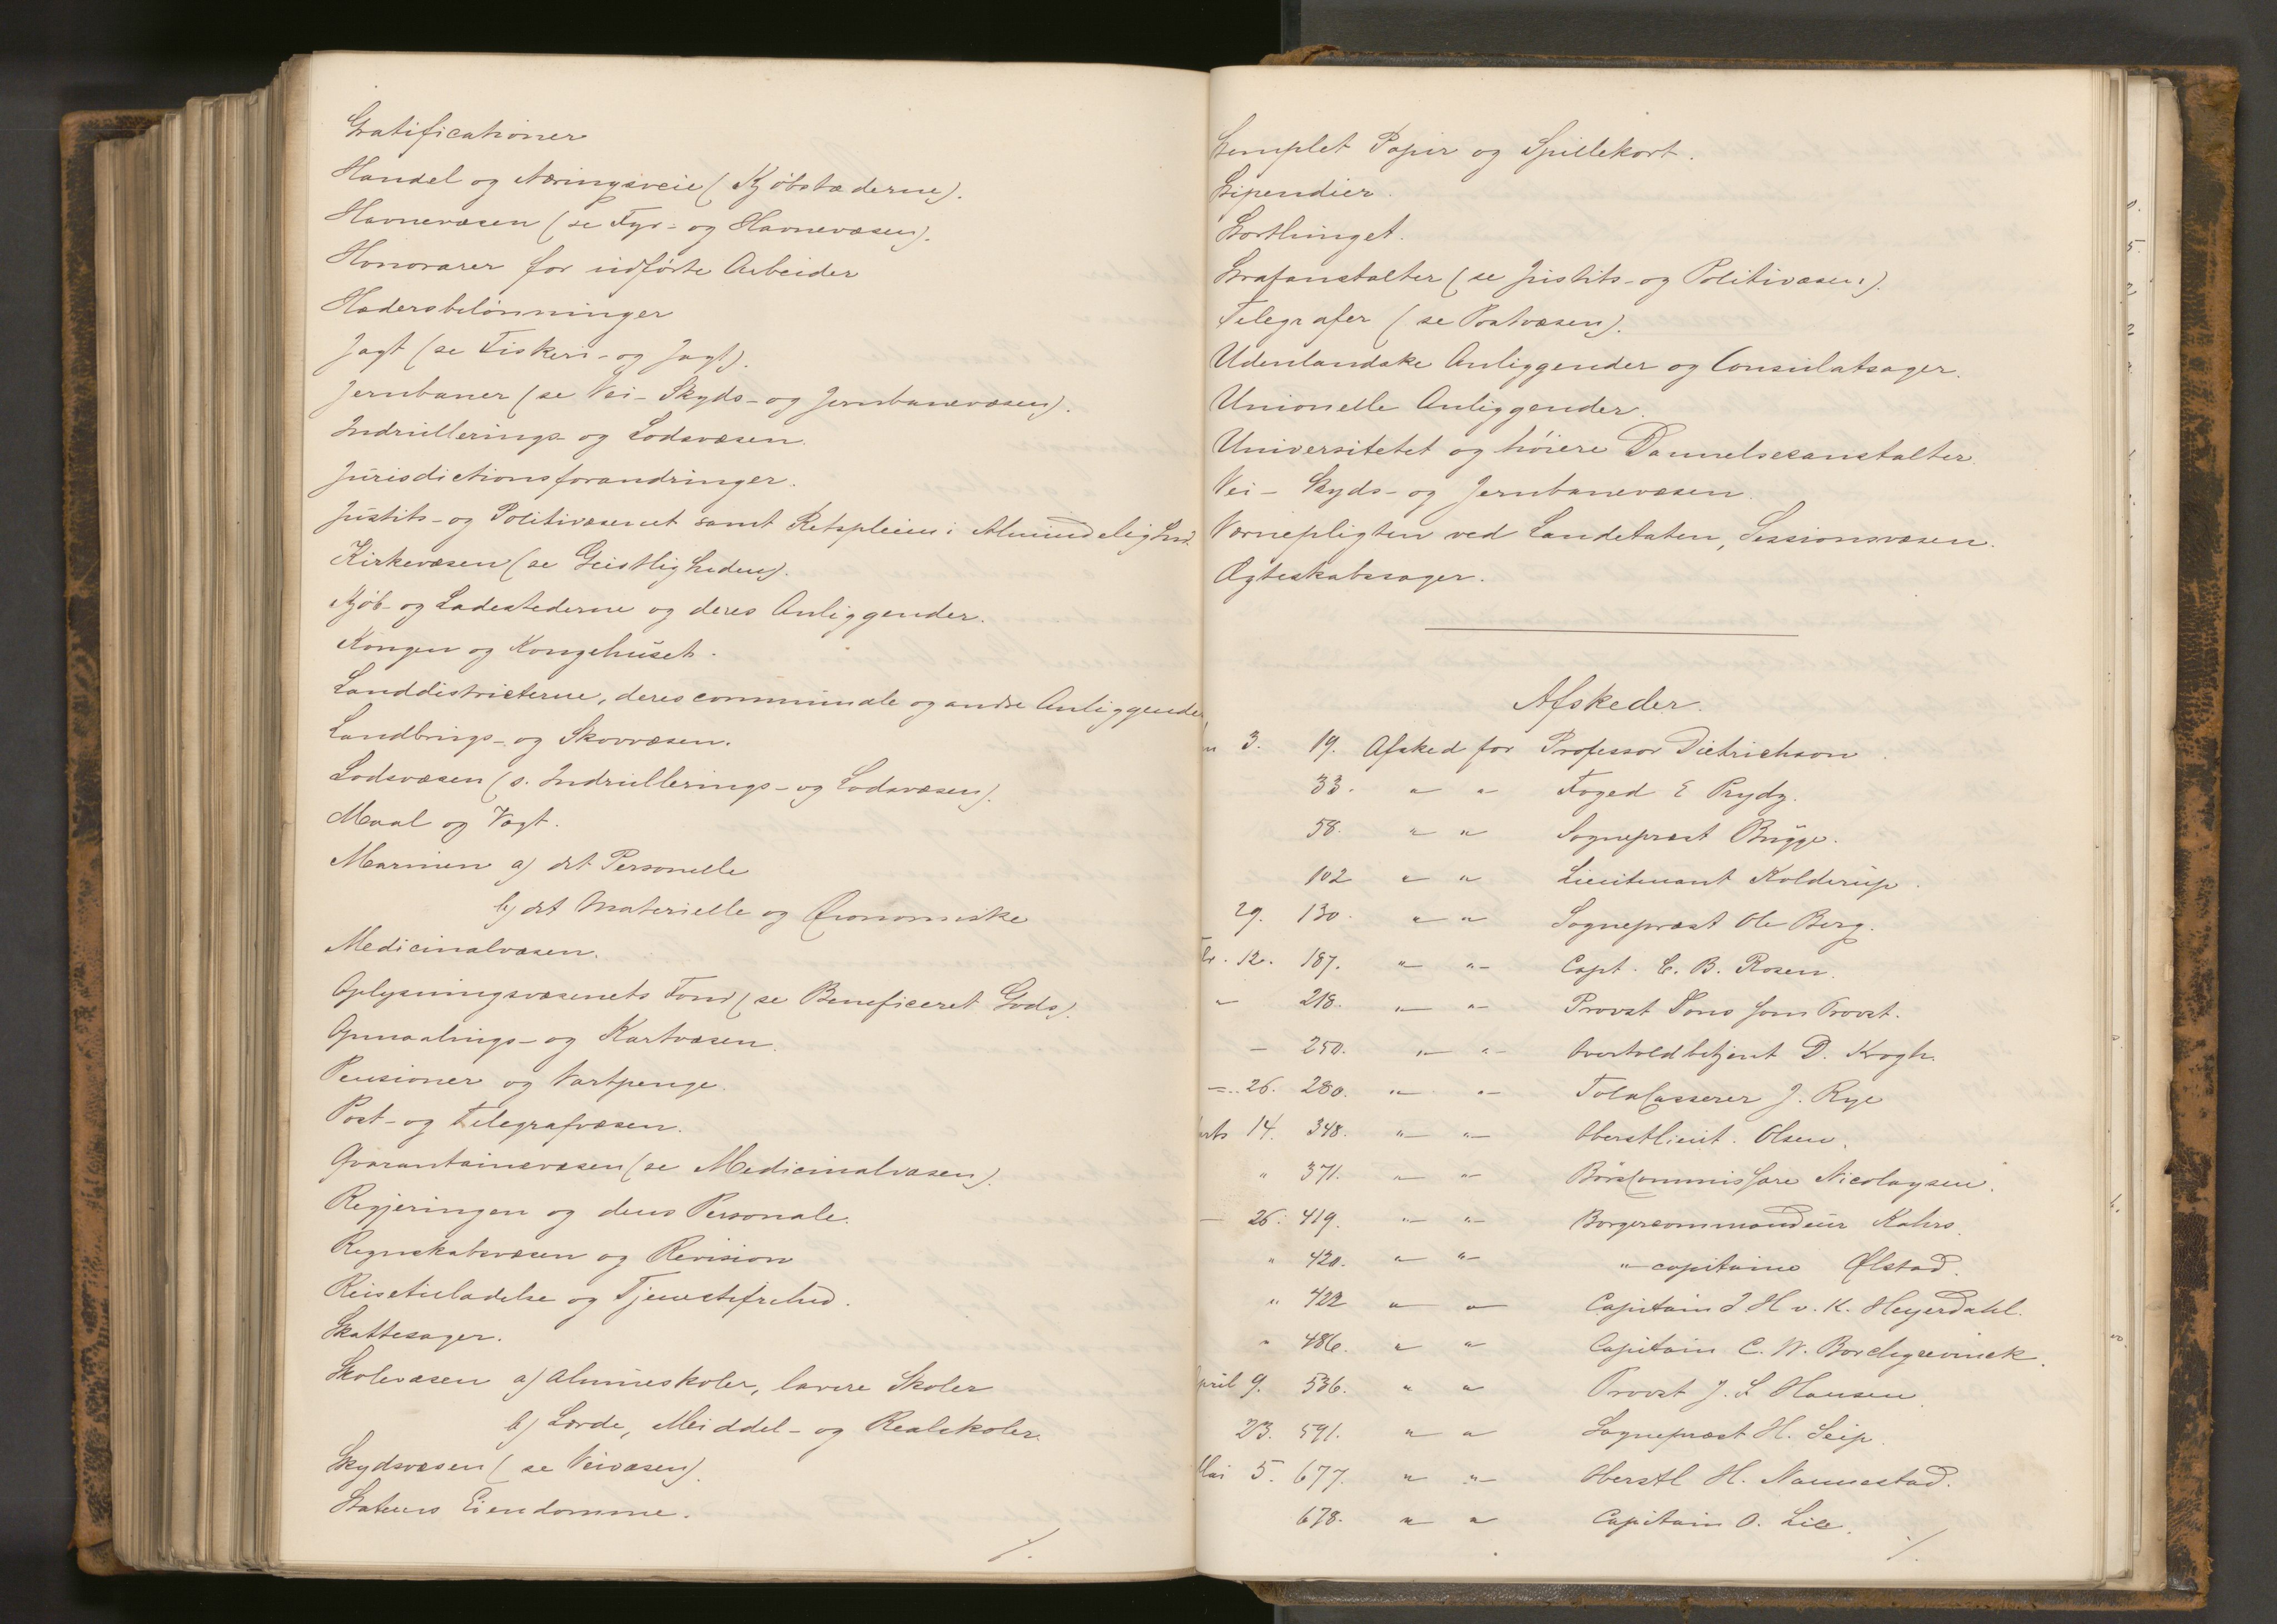 Gratificationer
Handel og Næringsveie (Kjøbstæderne).
Havnevæsen (se Fyr- og Havnevæsen).
Honorarer for udførte Arbeider
Hædersbelønninger
Jagt (se Fiskeri- og Jagt).
Jernbaner (se Vei- Skyds- og Jernbanevæsen).
Indrullerings- og Lodsvæsen.
Jurisdictionsforandringer.
Justits- og Politivæsenet samt Retspleien i Almindelighed.
Kirkevæsen (se Geistligheden).
Kjøb- og Ladestederne og deres Anliggender.
Kongen og Kongehuset.
Landdistricterne, deres communale og andre Anliggender.
Landbrugs- og Skovvæsen.
Lodsvæsen (s. Indrullerings- og Lodsvæsen).
Maal og Vægt.
Marinen a) det Personelle
b) det Materielle og Œconomiske
Medicinalvæsen.
Oplysningsvæsenets Fond (se Beneficeret Gods).
Opmaalings- og Kartvæsen.
Pensioner og Vartpenge.
Post- og Telegrafvæsen.
Qvarantainevæsen (se Medicinalvæsen).
Regjeringen og dens Personale.
Regnskabsvæsen og Revision
Reisetilladelse og Tjenestefrihed.
Skattesager.
Skolevæsen a) Almueskoler, lavere Skoler
b) Lærde, Middel- og Realskoler.
Skydsvæsen (se Veivæsen).
Statens Eiendomme.
./.
Stemplet Papir og Spillekort.
Stipendier.
Storthinget.
Strafanstalter (se Justits- og Politivæsen).
Telegrafer (se Postvæsen).
Udenlandske Anliggender og Consulatsager.
Unionelle Anliggender.
Universitetet og høiere Dannelsesanstalter.
Vei- Skyds- og Jernbanevæsen.
Værnepligten ved Landetaten, Sessionsvæsen.
Ægteskabssager.
Afskeder.
3. 19. Afsked for Professor Dietrichson.
33. " " Foged E Prydz.
58. " " Sogneprest Brügge.
102 " " Lieutenant Kolderup.
29. 130. " " Sogneprest Ole Berg.
12. 187. " " Capt. C. B. Rosen.
" 218. " " Provst Sons som Provst.
- 250. " " Overtoldbetjent D. Krogh.
- 26. 280. " " Toldcasserer J. Rye
14. 348. " " Oberstlieut. Olsen.
" 371. " " Børscommissære Nicolaysen.
- 26. 419. " " Borgercommandeur Kahrs.
" 420. " " " capitaine Ølstad.
" 422 " " Capitain J H v. K. Heyerdahl.
" 486. " " Capitain C. W. Borchgrevinck.
April 9. 536. " " Provst J. L Hansen.
23. 591. " " Sogneprest H. Seip.
Mai 5. 677. " " Oberstl H. Nannestad.
678. " " Capitain O. Lie.
./.